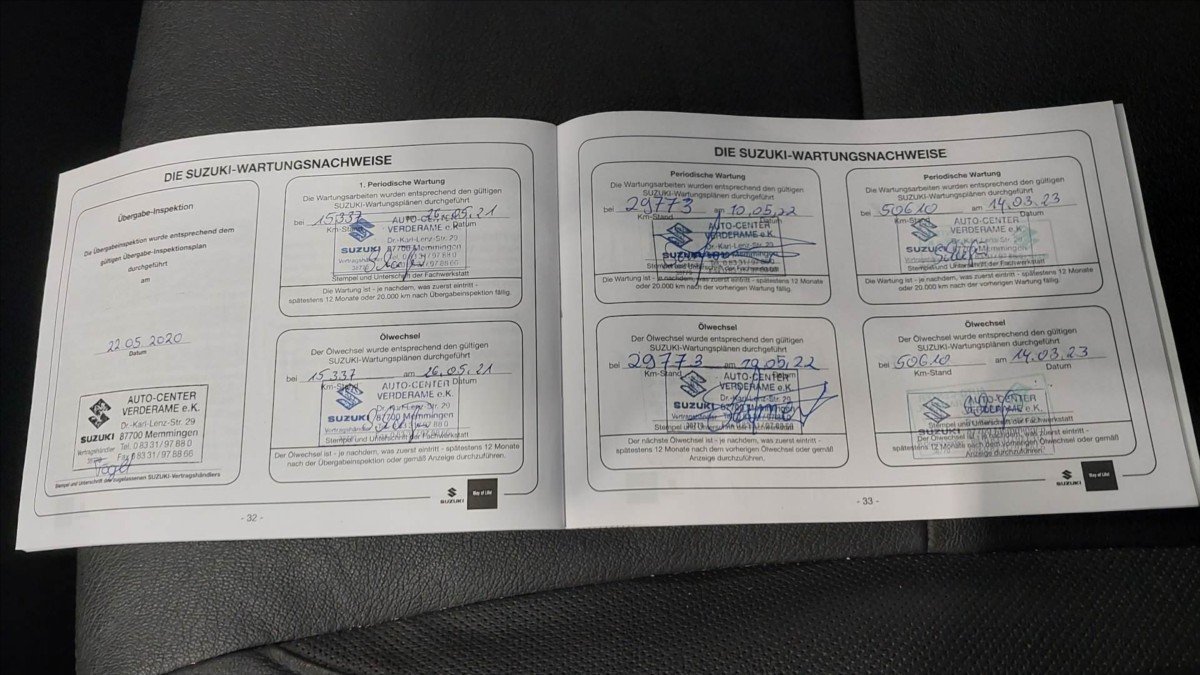 DIE SUZUKI-WARTUNGSNACHWEISE
Übergabe-Inspektion
Die Übergabeinspektion wurde entsprechend dem
gültigen Übergabe-Inspektionsplan
durchgeführt
am
22 05 2020
Datum
AUTO-CENTER
VERDERAME e.K.
Dr.-Karl-Lenz-Str. 29
SUZUKI 87700 Memmingen
Vertragshändler Tel. 0 83 31 / 97 88 0
Fax 0 83 31 / 97 88 66
Stempel und Unterschrift des zugelassenen SUZUKI-Vertragshändlers
1. Periodische Wartung
Die Wartungsarbeiten wurden entsprechend den gültigen
SUZUKI-Wartungsplänen durchgeführt
bei 15337 am 26.05.21
Km-Stand Datum
AUTO-CENTER
VERDERAME e.K.
Dr.-Karl-Lenz-Str. 29
SUZUKI 87700 Memmingen
Vertragshändler Tel. 0 83 31 / 97 88 0
Stempel und Unterschrift der Fachwerkstatt
Die Wartung ist - je nachdem, was zuerst eintritt -
spätestens 12 Monate oder 20.000 km nach Übergabeinspektion fällig.
Ölwechsel
Der Ölwechsel wurde entsprechend den gültigen
SUZUKI-Wartungsplänen durchgeführt
bei 15337 am 26.05.21
Km-Stand Datum
AUTO-CENTER
VERDERAME e.K.
Dr.-Karl-Lenz-Str. 29
SUZUKI 87700 Memmingen
Stempel und Unterschrift der Fachwerkstatt
Der Ölwechsel ist - je nachdem, was zuerst eintritt - spätestens 12 Monate
nach der Übergabeinspektion oder gemäß Anzeige durchzuführen.
SUZUKI Way of Life!
- 32 -
DIE SUZUKI-WARTUNGSNACHWEISE
Periodische Wartung
Die Wartungsarbeiten wurden entsprechend den gültigen
SUZUKI-Wartungsplänen durchgeführt
bei 29773 am 10.05.22
Km-Stand Datum
AUTO-CENTER
VERDERAME e.K.
Dr.-Karl-Lenz-Str. 29
SUZUKI 87700 Memmingen
Stempel und Unterschrift der Fachwerkstatt
Die Wartung ist - je nachdem, was zuerst eintritt - spätestens 12 Monate
oder 20.000 km nach der vorherigen Wartung fällig.
Ölwechsel
Der Ölwechsel wurde entsprechend den gültigen
SUZUKI-Wartungsplänen durchgeführt
bei 29773 am 10.05.22
Km-Stand Datum
AUTO-CENTER
VERDERAME e.K.
Dr.-Karl-Lenz-Str. 29
SUZUKI 87700 Memmingen
Stempel und Unterschrift der Fachwerkstatt
Der nächste Ölwechsel ist - je nachdem, was zuerst eintritt -
spätestens 12 Monate nach dem vorherigen Ölwechsel oder gemäß
Anzeige durchzuführen.
Periodische Wartung
Die Wartungsarbeiten wurden entsprechend den gültigen
SUZUKI-Wartungsplänen durchgeführt
bei 50610 am 14.03.23
Km-Stand Datum
AUTO-CENTER
VERDERAME e.K.
Dr.-Karl-Lenz-Str. 29
SUZUKI 87700 Memmingen
Stempel und Unterschrift der Fachwerkstatt
Die Wartung ist - je nachdem, was zuerst eintritt - spätestens 12 Monate
oder 20.000 km nach der vorherigen Wartung fällig.
Ölwechsel
Der Ölwechsel wurde entsprechend den gültigen
SUZUKI-Wartungsplänen durchgeführt
bei 50610 am 14.03.23
Km-Stand Datum
AUTO-CENTER
VERDERAME e.K.
Dr.-Karl-Lenz-Str. 29
SUZUKI 87700 Memmingen
Der Ölwechsel ist - je nachdem, was zuerst eintritt -
spätestens 12 Monate nach dem vorherigen Ölwechsel oder gemäß
Anzeige durchzuführen.
SUZUKI Way of Life!
- 33 -